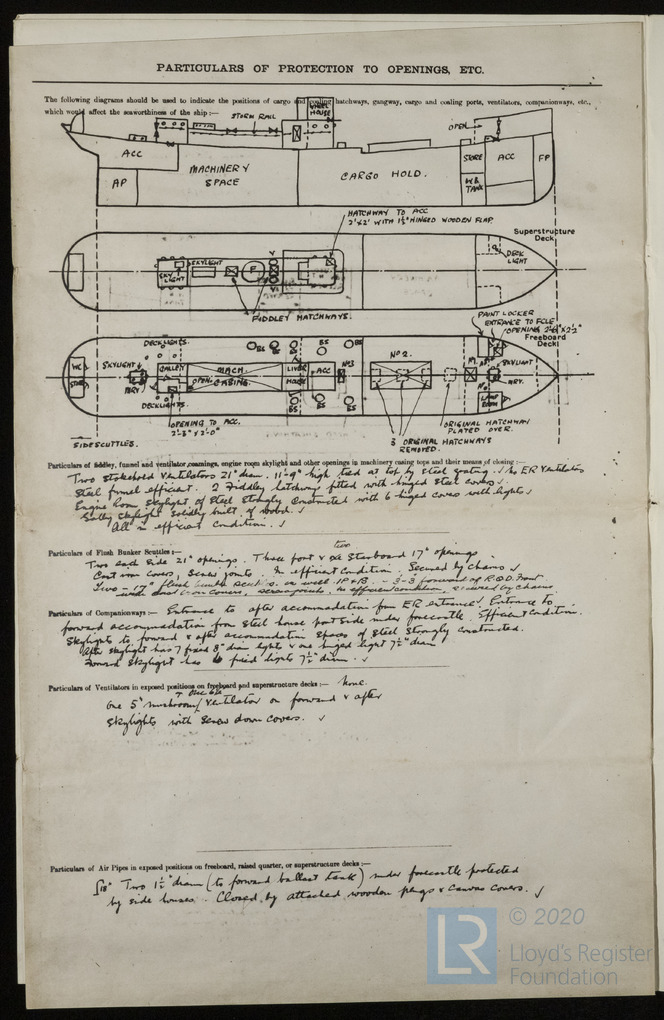 PARTICULARS OF PROTECTION TO OPENINGS, ETC.
The following diagrams should be used to indicate the positions of cargo and coaling hatchways, gangway, cargo and coaling ports, ventilators, companionways, etc.,
which would affect the seaworthiness of the ship :—
WHEEL
HOUSE
STORM RAIL
OPEN
ACC
MACHINERY
SPACE
CARGO HOLD.
STORE
ACC
FP
AP
W.B
TANK
HATCHWAY TO ACC
2'x2' WITH 1½" HINGED WOODEN FLAP
Superstructure
Deck
SKYLIGHT
SKY
LIGHT
F
DECK
LIGHT
FIDDLEY HATCHWAYS.
PAINT LOCKER
ENTRANCE TO FCLE
OPENING
Freeboard
Deck
DECKLIGHTS.
BS
BS
BS
BS
WC
STORE
SKYLIGHT
GALLEY
MACH.
OPEN CASING.
ACC
Nº3
Nº2.
Nº1
SKYLIGHT
HRY.
LAMP
ROOM
DECKLIGHTS.
BS
BS
BS
OPENING TO ACC.
2'-3" x 2'-0"
ORIGINAL HATCHWAY
PLATED OVER.
3 ORIGINAL HATCHWAYS
REMOVED.
SIDESCUTTLES.
Particulars of fiddley, funnel and ventilator coamings, engine room skylight and other openings in machinery casing tops and their means of closing :—
Two stokehold Ventilators 21" diam. 11'-9" high tied at top by steel grating. No ER Ventilators
Steel funnel efficient. 2 Fiddley hatchways fitted with hinged steel covers
Engine room skylight of steel strongly constructed with 6 hinged covers with lights
Galley skylight solidly built of wood.
All in efficient condition.
Particulars of Flush Bunker Scuttles :—
two
Two each side 21" openings. Three port & one Starboard 17" openings
Cast iron covers, screw joints. In efficient condition. Secured by chains
Two - 17" flush bunker scuttles in well 1P+1B. - 3-3 forward of R.Q.D. Front
with cast iron covers, screw joints, in efficient condition, secured by chains
Particulars of Companionways :— Entrance to after accommodation from ER entrance. Entrance to
forward accommodation from steel house port side under forecastle. Efficient condition.
Skylights to forward & after accommodation spaces of steel strongly constructed.
After skylight has 7 fixed 8" diam lights & one hinged light 7½" diam
Forward skylight has 6 fixed lights 7½" diam.
Particulars of Ventilators in exposed positions on freeboard and superstructure decks :— None.
One 5" mushroom Ventilator on forward & after
skylights with screw down covers.
Particulars of Air Pipes in exposed positions on freeboard, raised quarter, or superstructure decks :—
18" Two 1½" diam (to forward ballast tank) under forecastle protected
by side houses. Closed by attached wooden plugs & canvas covers.
LR
© 2020
Lloyd's Register
Foundation